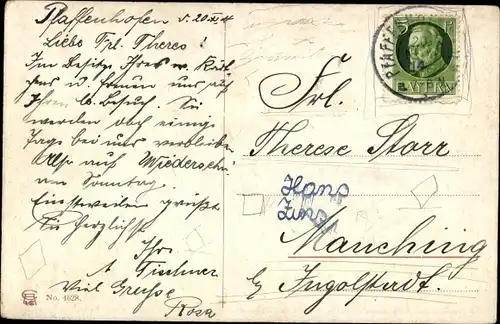 Pfaffenhofen d. 20.XI.14
Liebe Frl. Theres!
Im Besitze Ihres w. Kart-
chens u. freuen uns auf
Ihren lb. Besuch. Sie
werden doch einige
Tage bei uns verbleiben
Also auf Wiedersehn
am Sonntag.
Einstweilen grüßt
Sie herzlichst
Ihr
A. Fischner
Viel Grüsse
Rosa
No. 4628.
5
PFAFFE
BAYERN
Frl.
Therese Storr
Hans
Manching
b/ Ingolstadt.